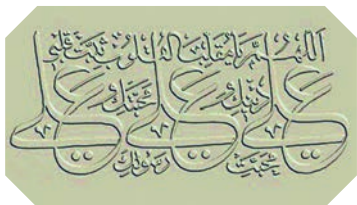 اللهم يا مقلب القلوب ثبت قلبي
على دينك و على محبتك و على
محبت رسولك